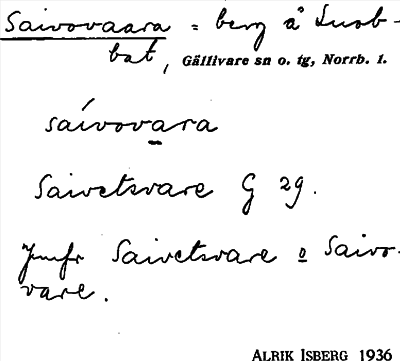 Saivovaara = berg å Luob-
bat, Gällivare sn o. tg, Norrb. l.
saívovara
Saivetsvare G 29.
Jmfr Saivetsvare o Saivo-
vare.
ALRIK ISBERG 1936